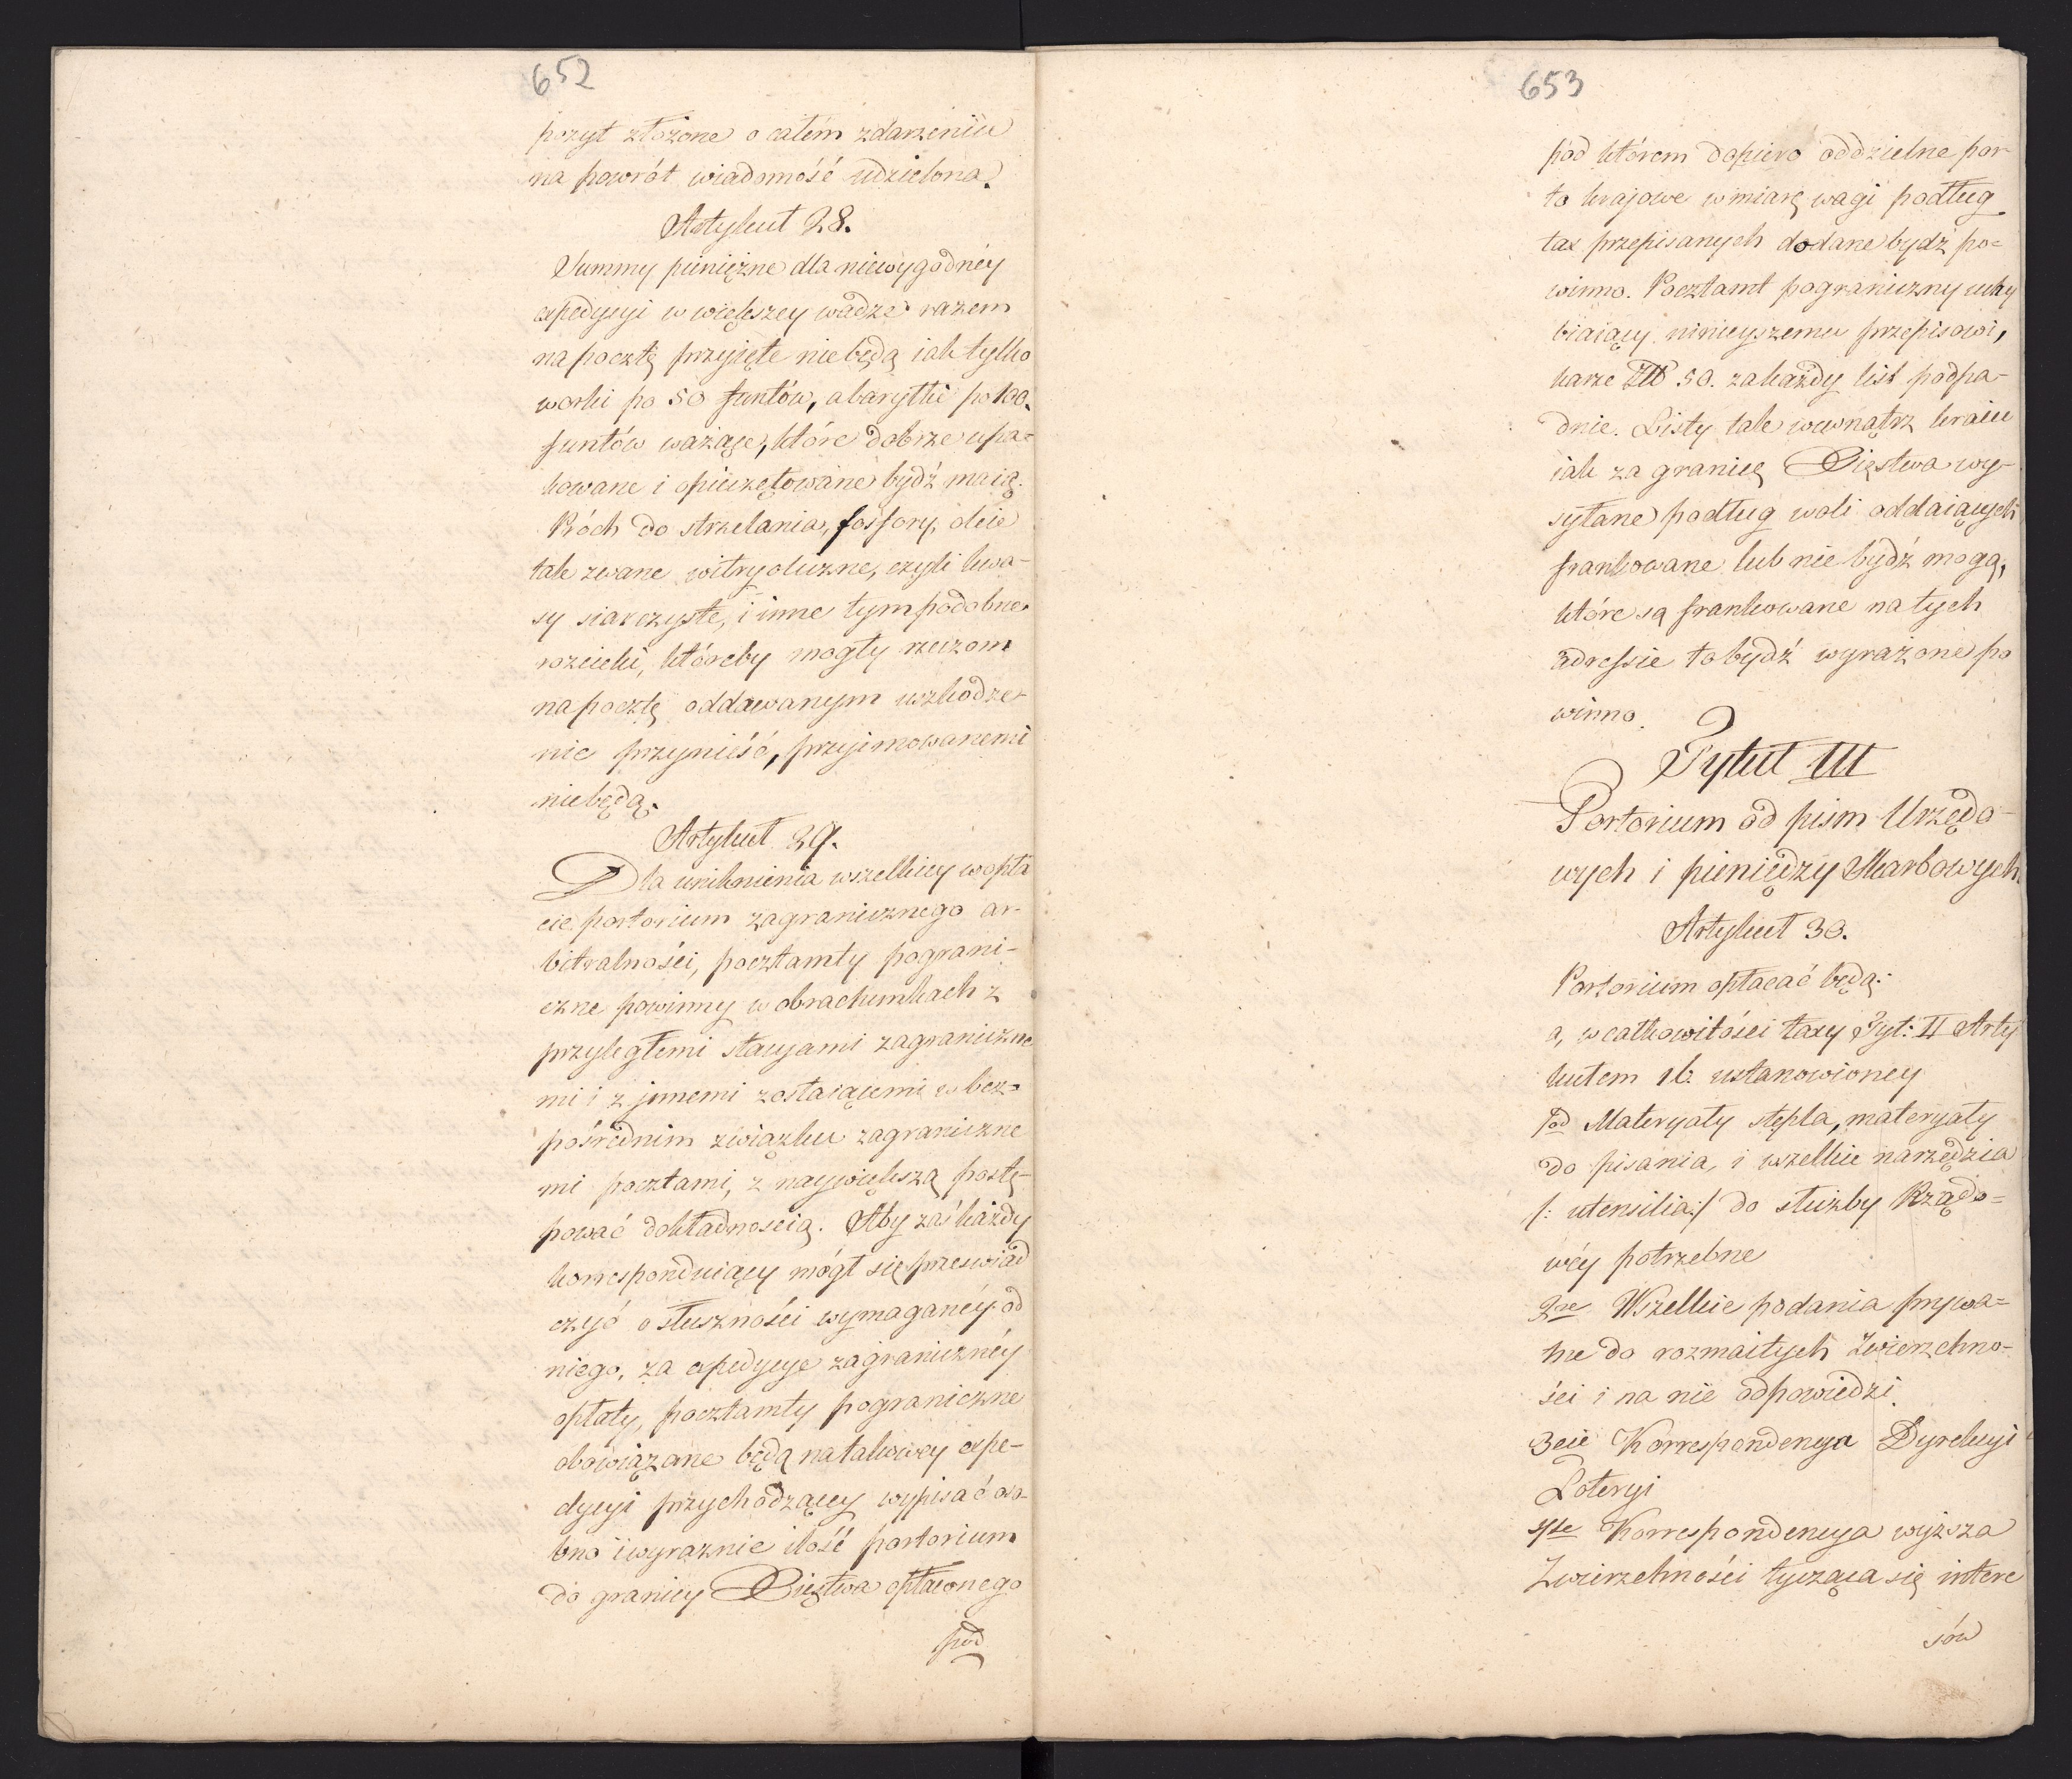 652
pozyt złożone o całém zdarzeniu
na powrót wiadomość udzielona.
Artykuł 28.
Summy pieniężne dla niewygodnéy
expedycyi w większey wadze razem
na pocztę przyięte niebędą iak tylko
worki po 50 funtów, a baryłki po 100.
funtów ważące, które dobrze upa=
kowane i opieczętowane bydź maią.
Próch do strzelania, fosfory, oleie
tak zwane witryoliczne, czyli kwa-
sy siarczyste, i inne tym podobne
rzeczy, któreby mogły rzeczom
na pocztę oddawanym uszkodze-
nie przynieść, przyimowanemi
niebędą.
Artykuł 29.
Dla uniknienia wszelkiey w opła
cie portorium zagranicznego ar-
bitralności, pocztamty pograni-
czne powinny w obrachunkach z
przyległemi stacyami zagraniczne
mi i z innemi zostaiącemi w bez=
pośrednim związku zagraniczne
mi pocztami, z naywiększą postę-
pować dokładnością. Aby zaś każdy
korresponduiący mógł się przeświad
czyć o słuszności wymaganéy od
niego, za expedycye zagranicznéy
opłaty, pocztamty pograniczne
obowiązane będą na takowey expe-
dycyi przychodzącey wypisać oso-
bno i wyraznie ilość portorium
do granicy Xięstwa opłaconego
pod
653
pod którem dopiero oddzielne por-
to krajowe w miarę wagi podług
tax przepisanych dodane bydź po=
winno. Pocztamt pograniczny uchy
biaiący ninieyszemu przepisowi,
karze Złł 50. za każdy list podpa-
dnie. Listy tak wewnątrz kraiu
iak za granicę Xięstwa wy-
syłane podług woli oddaiących
frankowane lub nie bydź mogą,
które są frankowane na tych
adressie to bydź wyrażone po
winno.
Tytuł III
Portorium od pism Urzędo-
wych i pieniędzy Skarbowych.
Artykuł 30.
Portorium opłacać będą:
a, w całkowitości taxy Tyt: II Arty
kułem 16. ustanowioney
1od Materyały stępla, materyały
do pisania, i wszelkie narzędzia
/: utensilia :/ do służby Rządo=
wéy potrzebne
2re Wszelkie podania prywa=
tne do rozmaitych Zwierzchno-
ści i na nie odpowiedzi.
3cie Korrespondencya Dyrekcyi
Loteryi
4te Korrespondencya wyższa
Zwierzchności tycząca się intere
sów